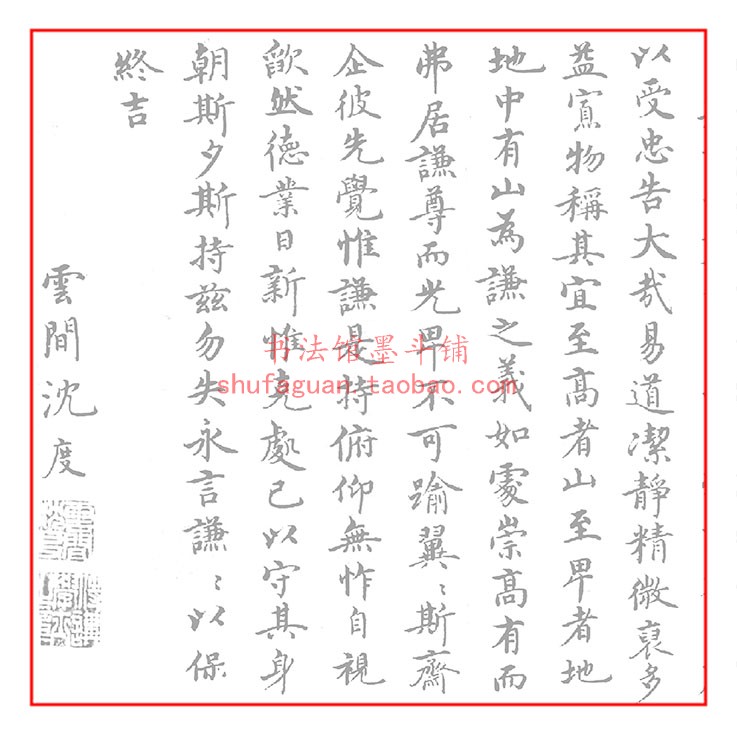 以受忠告大哉易道潔靜精微裒多
益寡物稱其宜至高者山至卑者地
地中有山為謙之義如處崇高有而
弗居謙尊而光卑不可踰翼〻斯齋
企彼先覺惟謙是持俯仰無怍自視
歆然德業日新惟克處己以守其身
朝斯夕斯持茲勿失永言謙〻以保
終吉
雲間沈度
书法馆墨斗铺
shufaguan.taobao.com